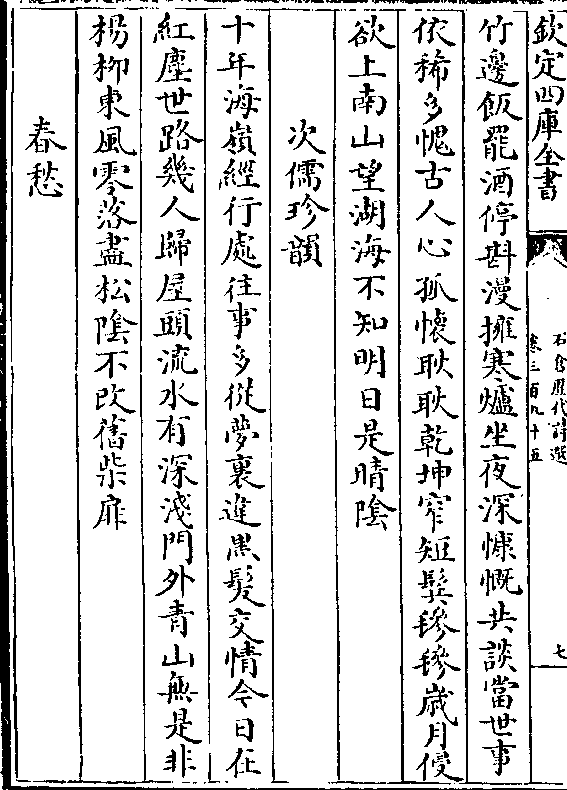 欽定四庫全書
石倉歷代詩選
卷三百九十五
七
竹邊飯罷酒停斟漫擁寒爐坐夜深慷慨共談當世事
依稀多愧古人心孤懷耿耿乾坤窄短鬂鬖鬖歲月侵
欲上南山望湖海不知明日是晴陰
次儒珍韻
十年海嶺經行處往事多從夢裏違黒髮交情今日在
紅塵世路幾人歸屋頭流水有深淺門外青山無是非
楊柳東風零落盡松陰不改舊柴扉
春愁